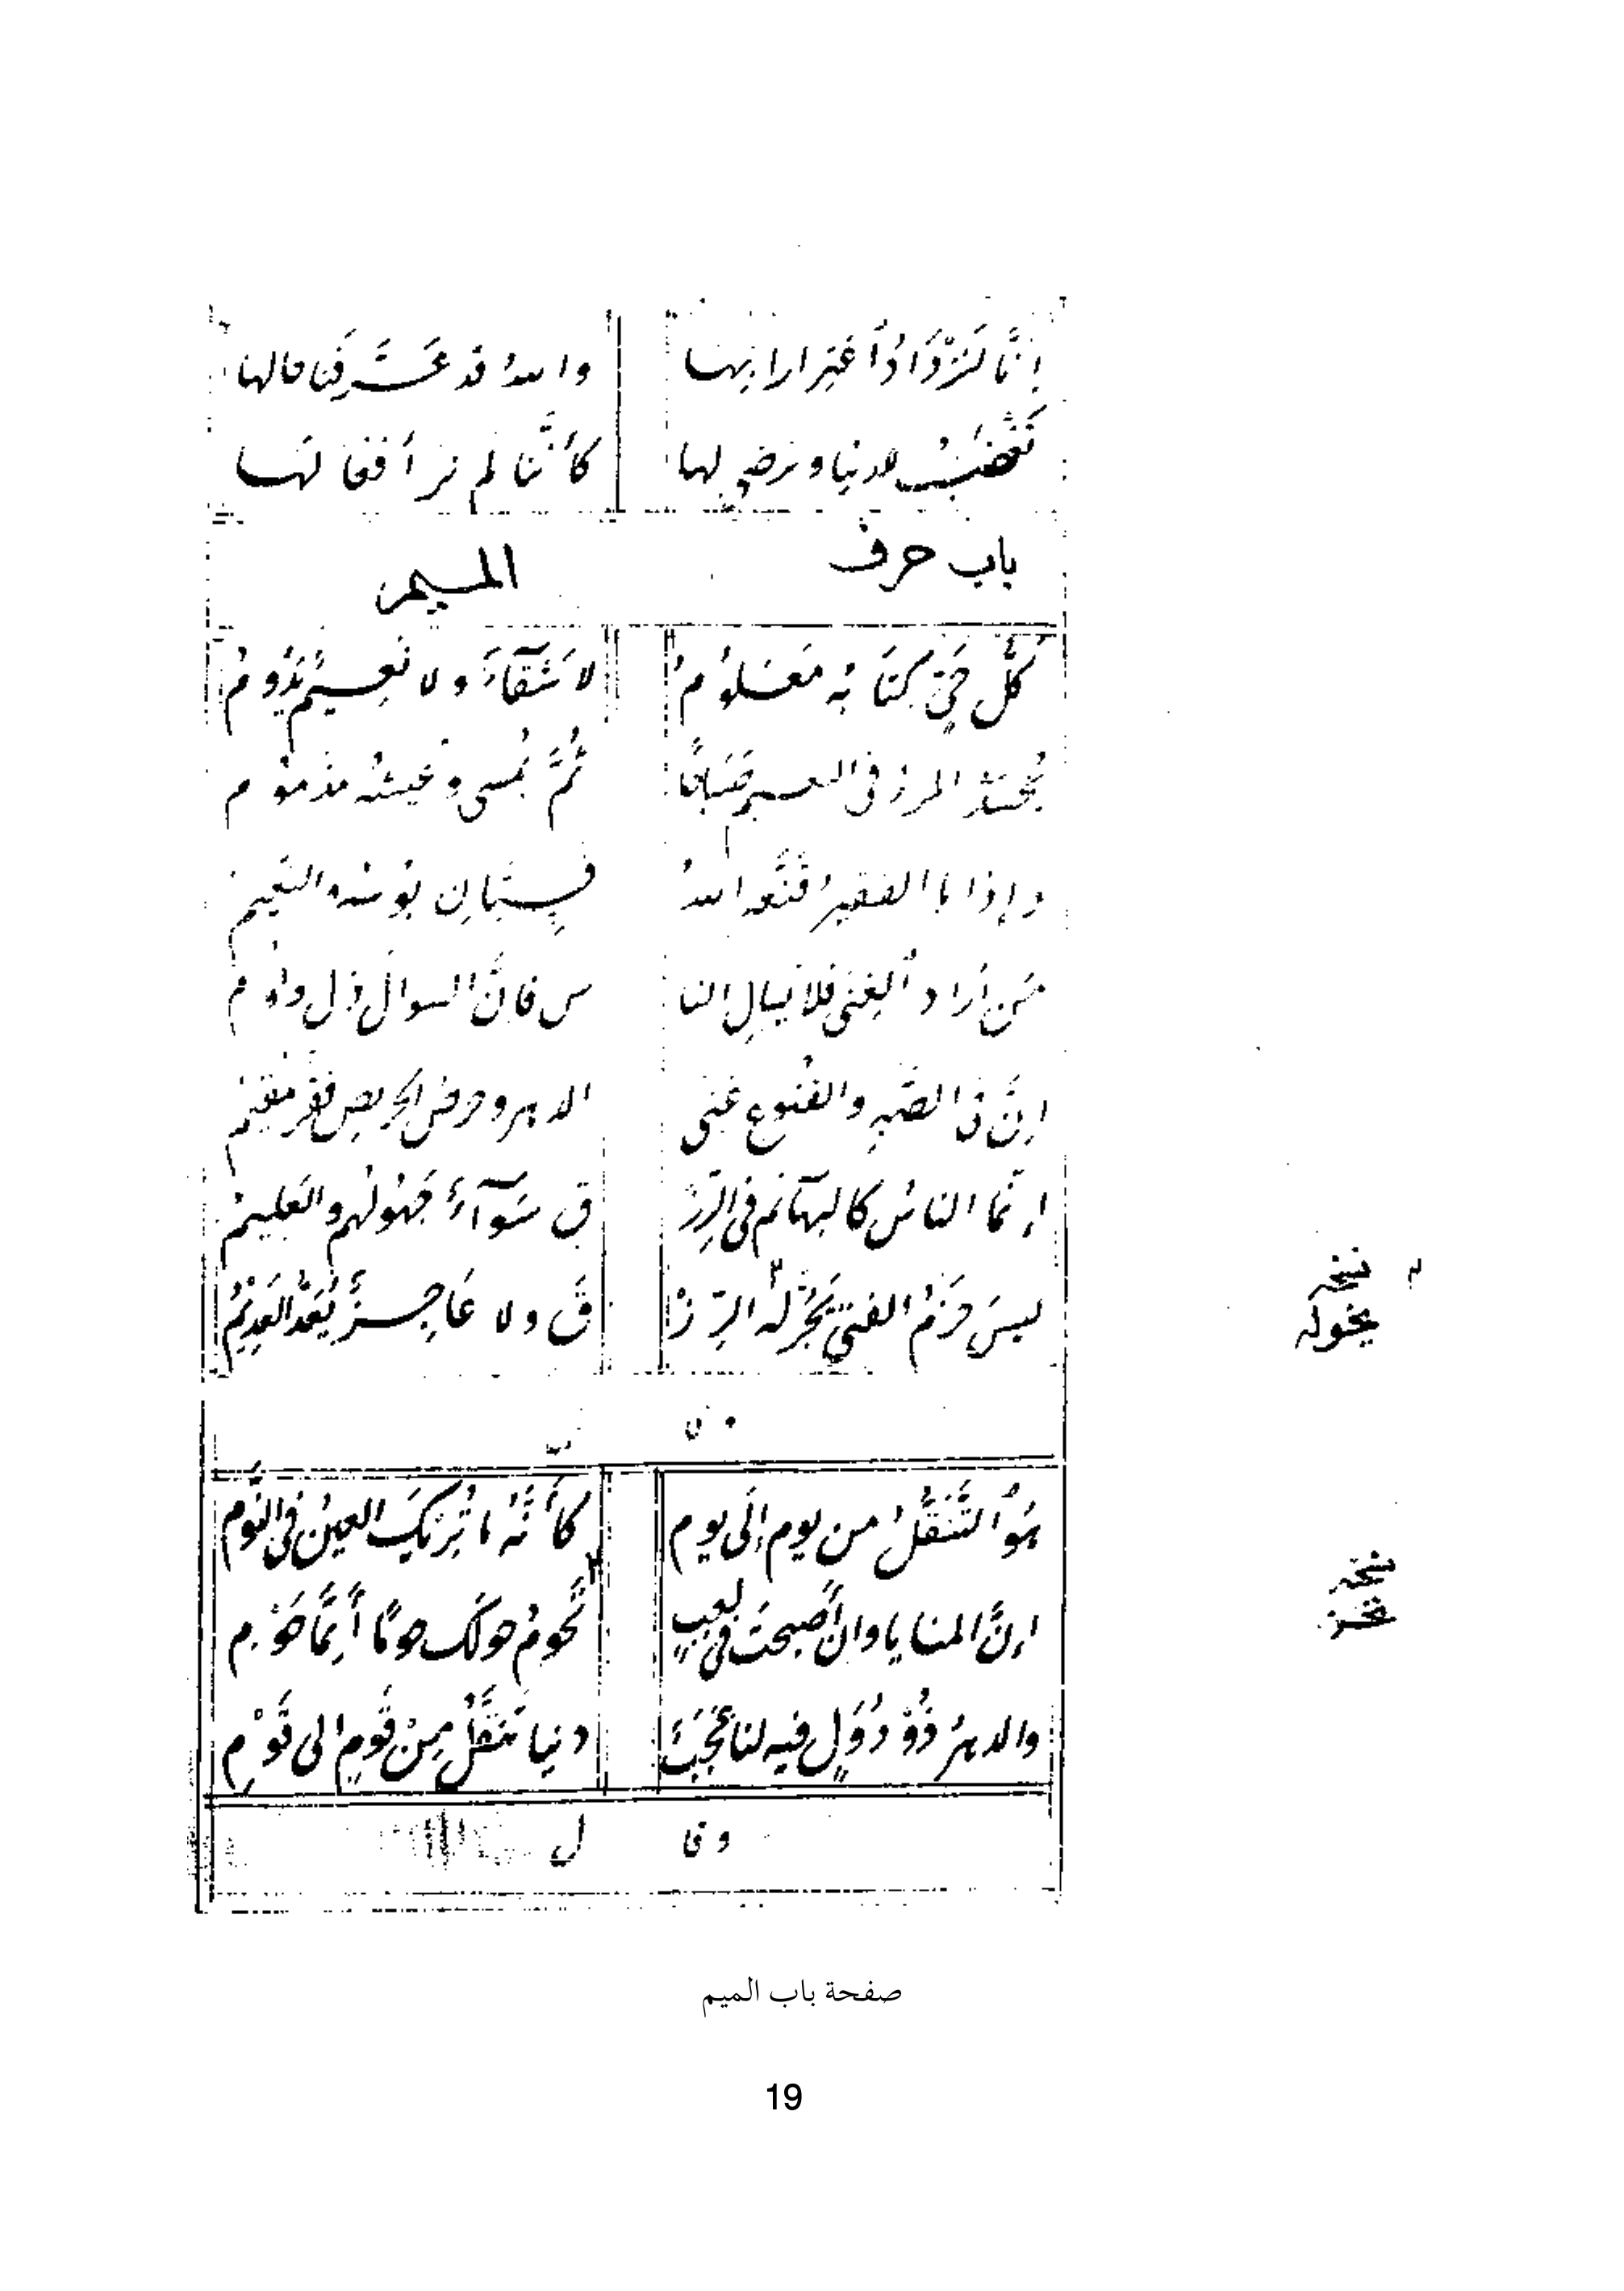 إنَّا لَنَزْدَادُ اغتِرارا بِها والله قد عَرَّفنا حالها
نَغْضَبُ للدنيا ونرضى لها كأنَّنا لم نر أفعالها
باب حرف الميم
كُلُّ حَيٍّ كِتَابُه مَعْلُومُ لا شَقَآءَ ولا نَعِيمٌ يَدُومُ
يُحْسَدُ المرءُ في النعيم صَبَاحًا ثُمَّ يُمسى وعيشُه مذموم
وإذا ما الفقيرُ قَنَّعه اللهُ فسِيَّانِ بؤسُه والنَّعِيمُ
مَن أراد الغِنَى فلا يَسألِ النا س فإنَّ السوالَ ذل ولؤم
إنَّ في الصَّبرِ والقُنوعِ غِنَى الدهر وحرصُ الحَريصِ فَقرٌ مُقيمُ
إنَّما الناسُ كالبهآئم في الرِّزْ ق سَوَآءٌ جَهُولُهم والعَلِيمُ
ليسَ حَزْمُ الفتى يَجُرُّ له الرِّزْ قَ ولا عَاجِزًا يُعَدُّ العَدِيمُ
م نسخه
يحوله
وقال
هُوَ التَّنَقُّلُ من يوم إلَى يوم كأنَّه ما تُرِيكَ العينُ في النَّوم
إنَّ المنايا وان أصبحتَ في لعبٍ تَحُومُ حولكَ حومًا أيَّمَا حَوْمِ
نسخه
والدهرُ ذُوْ دُوَلٍ فيه لنا عَجَبٌ دنيا تَنَقَّلُ مِنْ قَومٍ الى قَوْمِ
وقال
صفحة باب الميم
19